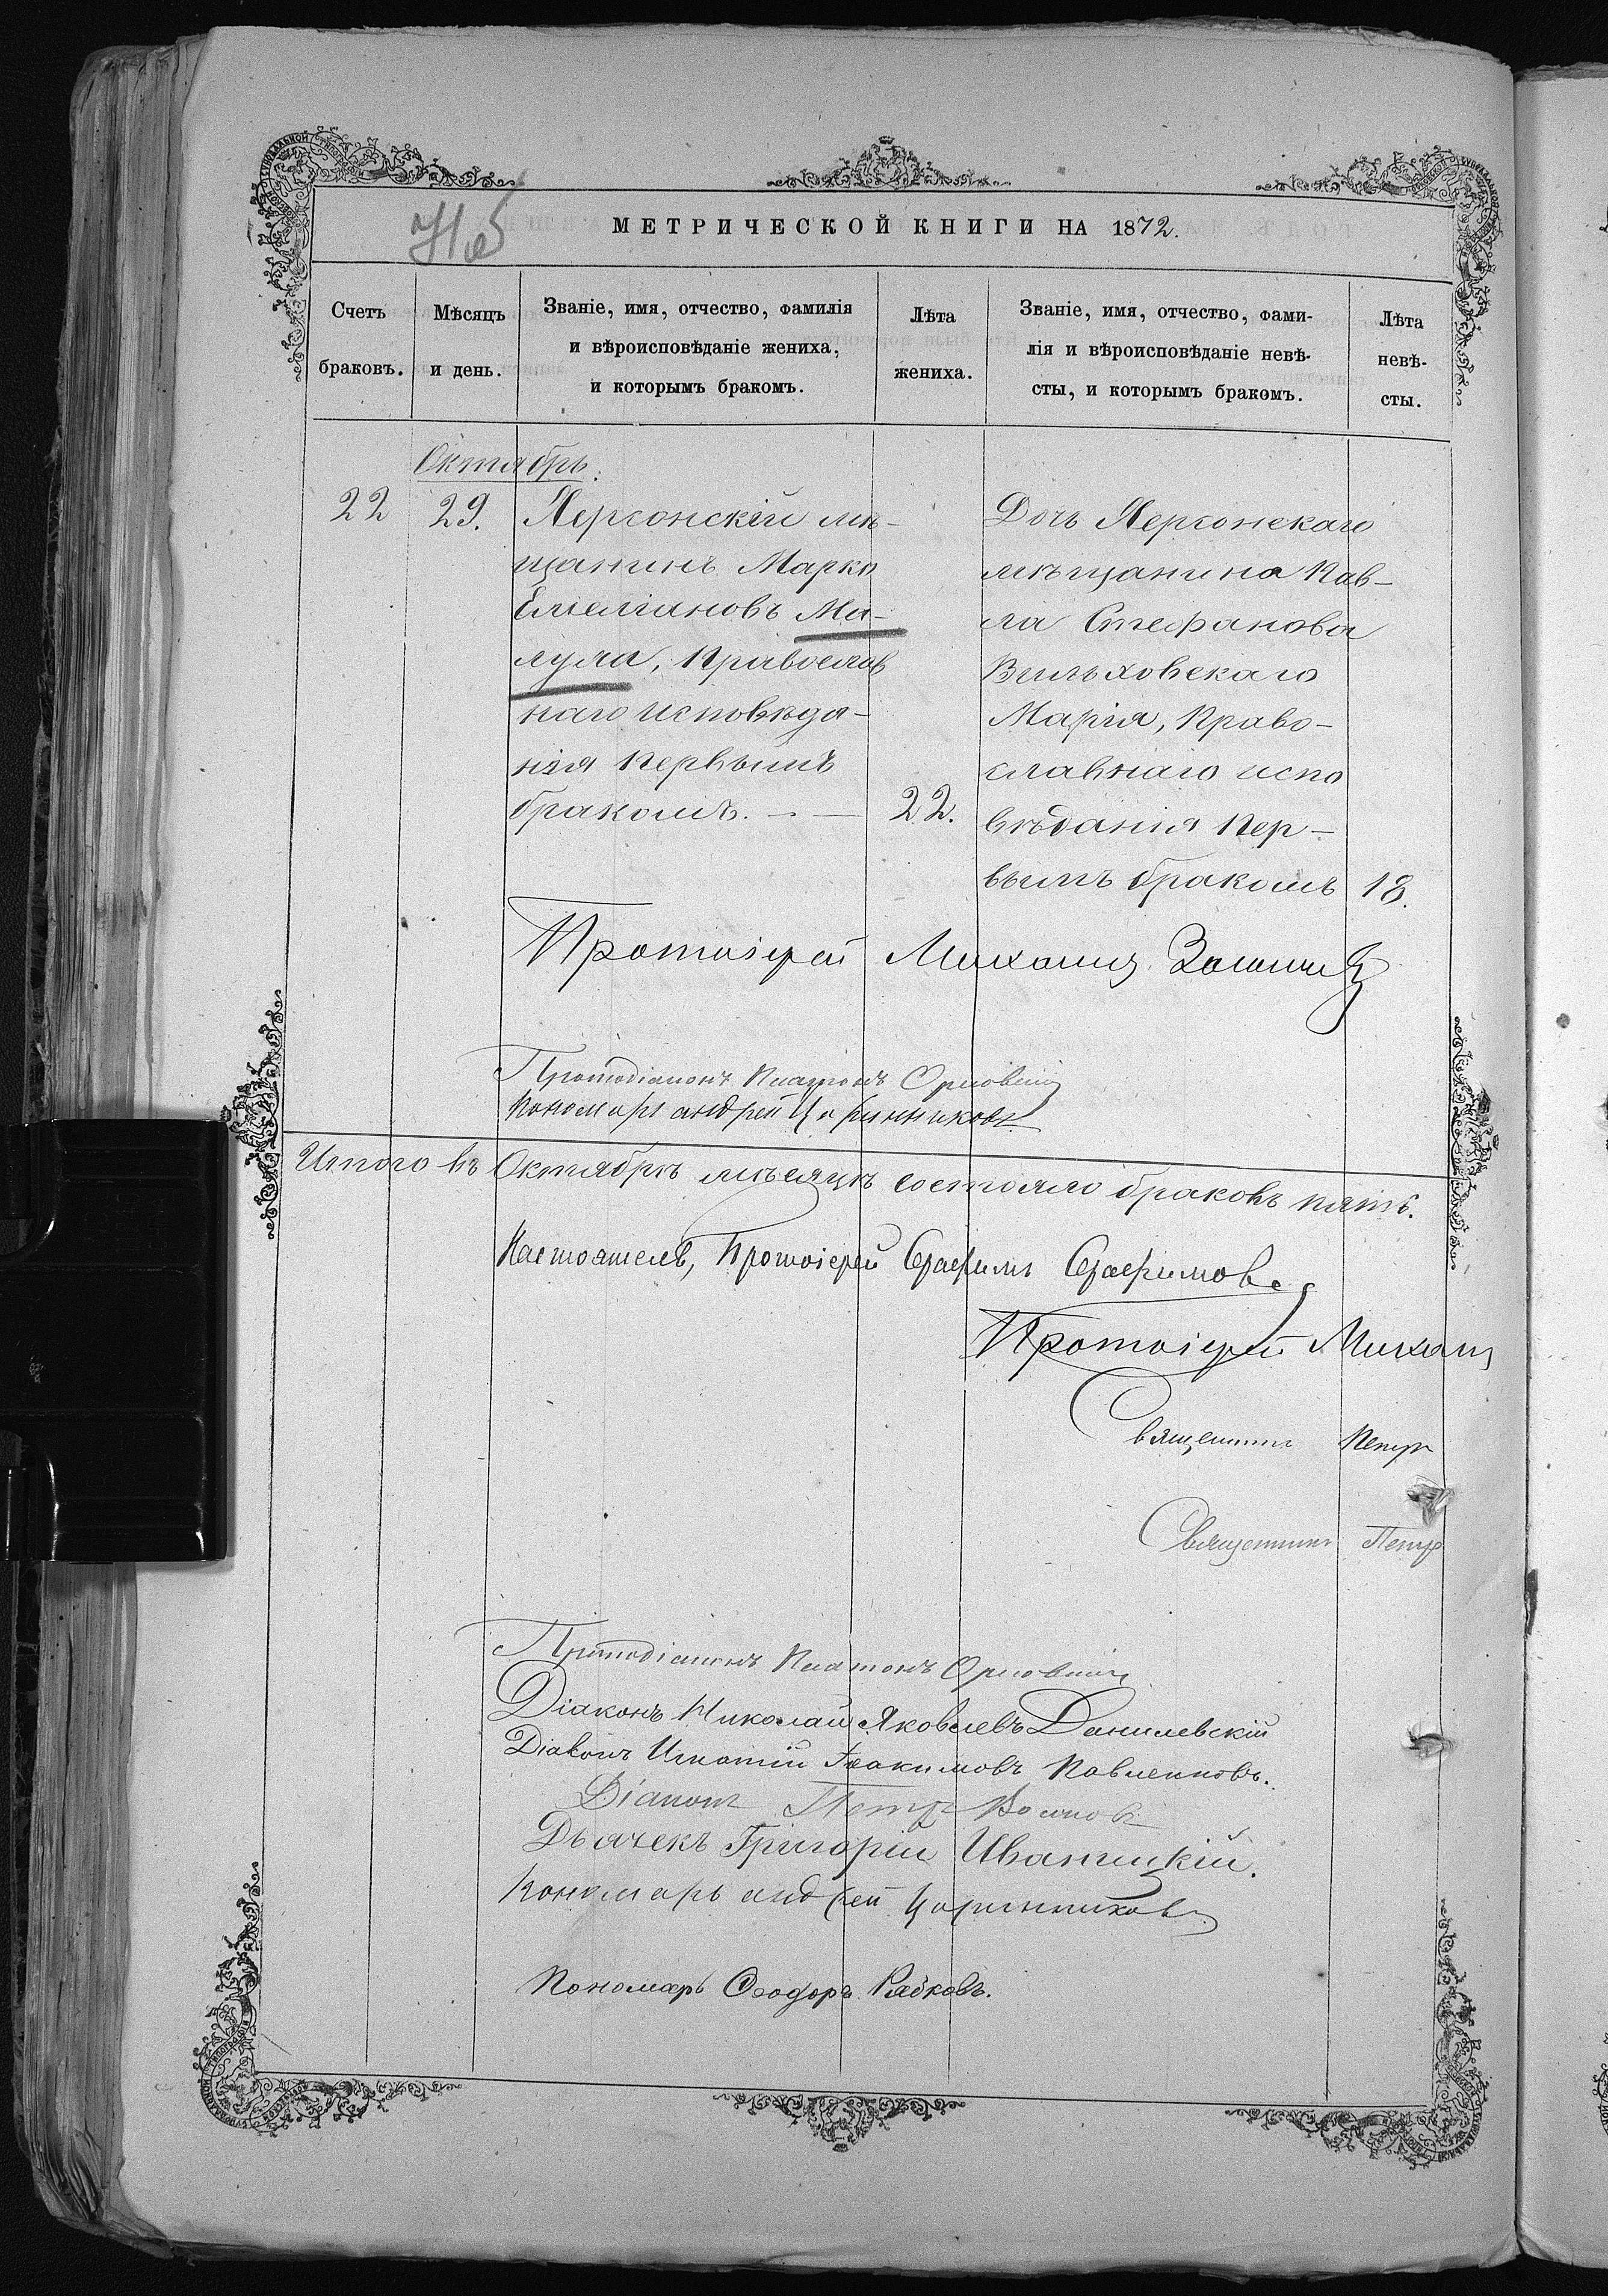 МЕТРИЧЕСКОЙ КНИГИ НА 1872.
Счетъ браковъ.
Мѣсяцъ и день.
Званіе, имя, отчество, фамилія
и вѣроисповѣданіе жениха,
и которымъ бракомъ.
Лѣта жениха.
Званіе, имя, отчество, фами-
лія и вѣроисповѣданіе невѣ-
сты, и которымъ бракомъ.
Лѣта
невѣ-
сты.
Октябрь.
22
29.
Херсонскій мѣ-
щанинъ Марко
Емеліановъ Ма-
лула, Православ
наго исповѣда-
нія первымъ
бракомъ. - —
22.
Дочь Херсонскаго
мѣщанина Пав-
ла Стефанова
Вильховскаго
Марія, Право-
славнаго испо
вѣданія пер-
вымъ бракомъ
18.
Протоіерей Михаилъ
Протодіаконъ Платонъ Орловскій
Пономарь андрей Царинниковъ
Итого въ Октябрѣ мѣсяцѣ состояло браковъ пять.
Настоятель, Протоіерей Серафимъ Серафимовъ
Протоіерей Михаилъ
Священникъ Петръ
Священникъ Петръ
Протодіаконъ Платонъ Орловскій
Діаконъ Николай Яковлевъ Данилевскій
Діаконъ Игнатій Іоакимовъ Павленковъ.
Діаконъ Петръ Волковъ
Дьячекъ Григорій Иваницкій.
Пономарь андрей Царинниковъ
Пономарь Ѳеодоръ Рябковъ.